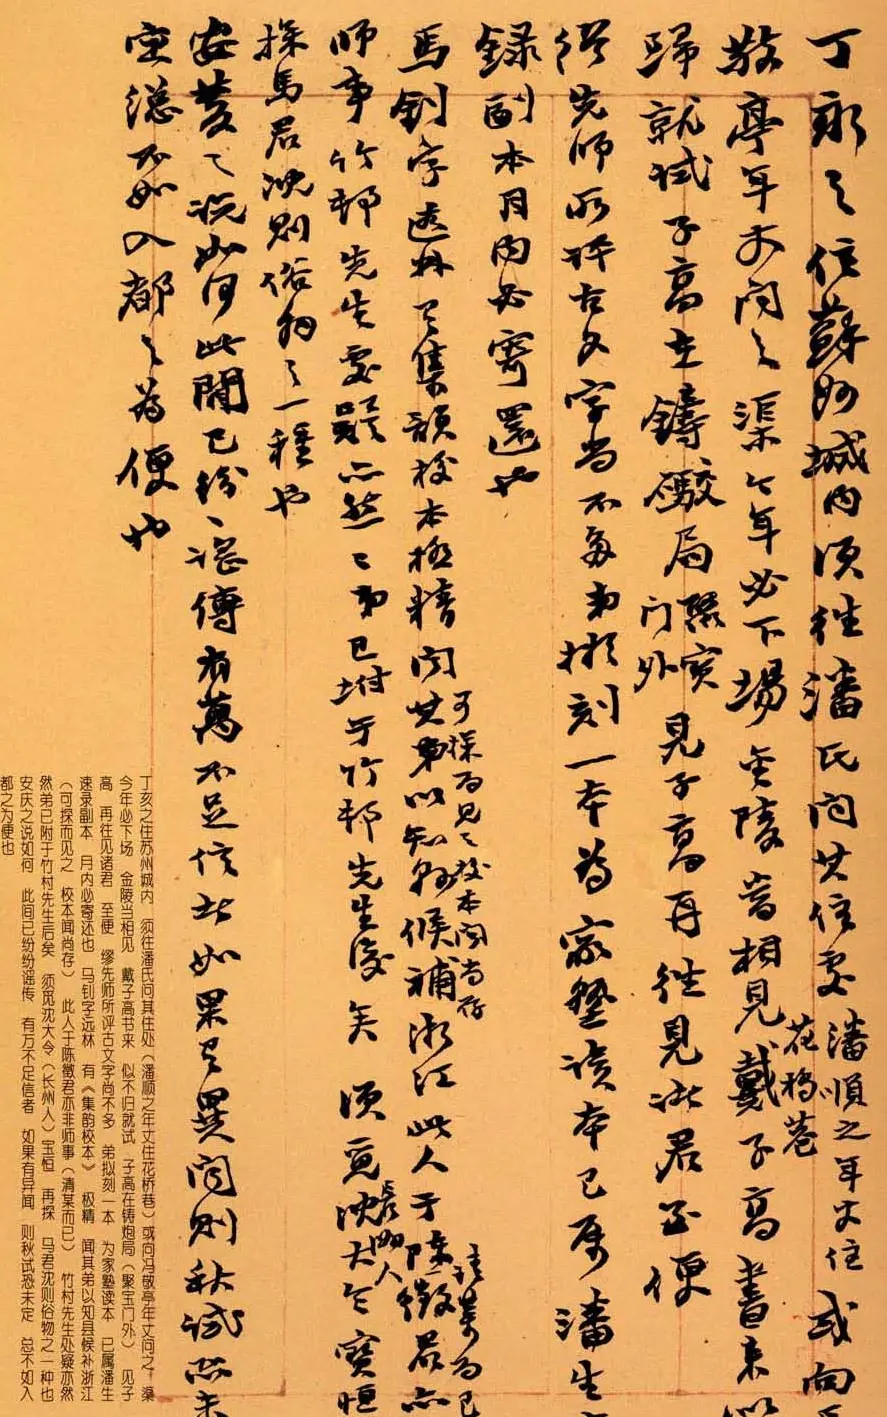 丁泳之住蘇州城内須往潘氏問其住處潘順之年丈住花橋巷或向
敬亭年丈問之渠今年必下場金陵當相見戴子高書來似
歸就試子高在鑄礮局聚寶門外見子高再往見諸君至便
繆先師所評古文字尚不多弟擬刻一本為家塾讀本已屬潘生
録副本月内必寄還也
馬釗字遠林有集韻校本極精聞其弟以知縣候補浙江此人于陳徵君亦
可探而見之校本聞尚存
請業而已
師事竹邨先生處疑亦然弟已坿于竹邨先生後矣須覓沈大令長州人寶恒
探馬君沈則俗物之一種也
安慶之説如何此間已紛紛謡傳有萬不足信者如果有異聞則秋試恐未
定總不如入都之為便也
丁亥之住苏州城内 须往潘氏问其住处（潘顺之年丈住花桥巷）或向冯敬亭年丈问之 渠
今年必下场 金陵当相见 戴子高书来 似不归就试 子高在铸炮局（聚宝门外） 见子
高 再往见诸君 至便 缪先师所评古文字尚不多 弟拟刻一本 为家塾读本 已属潘生
速录副本 月内必寄还也 马钊字远林 有《集韵校本》 极精 闻其弟以知县候补浙江
（可探而见之 校本闻尚存） 此人于陈徵君亦非师事（清某而已） 竹村先生处疑亦然
然弟已附于竹村先生后矣 须觅沈大令（长州人）宝恒 再探 马君沈则俗物之一种也
安庆之说如何 此间已纷纷谣传 有万不足信者 如果有异闻 则秋试恐未定 总不如入
都之为便也